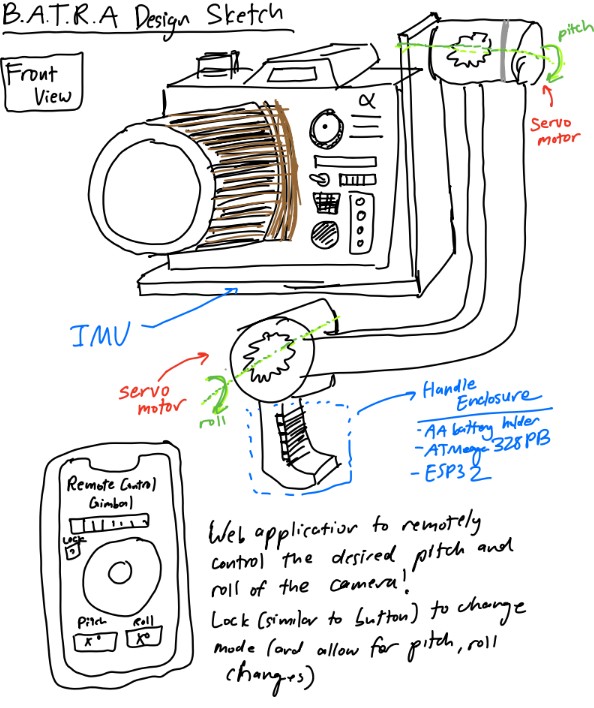 B.A.T.R.A Design Sketch
Front
View
α
pitch
Servo
motor
IMU
servo
motor
roll
Handle
Enclosure
- AA battery holder
- ATMega 328PB
- ESP32
Remote Control
Gimbal
Lock
Pitch
Roll
X°
X°
Web application to remotely
control the desired pitch and
roll of the camera!
Lock (similar to button) to change
mode (and allow for pitch, roll
changes)